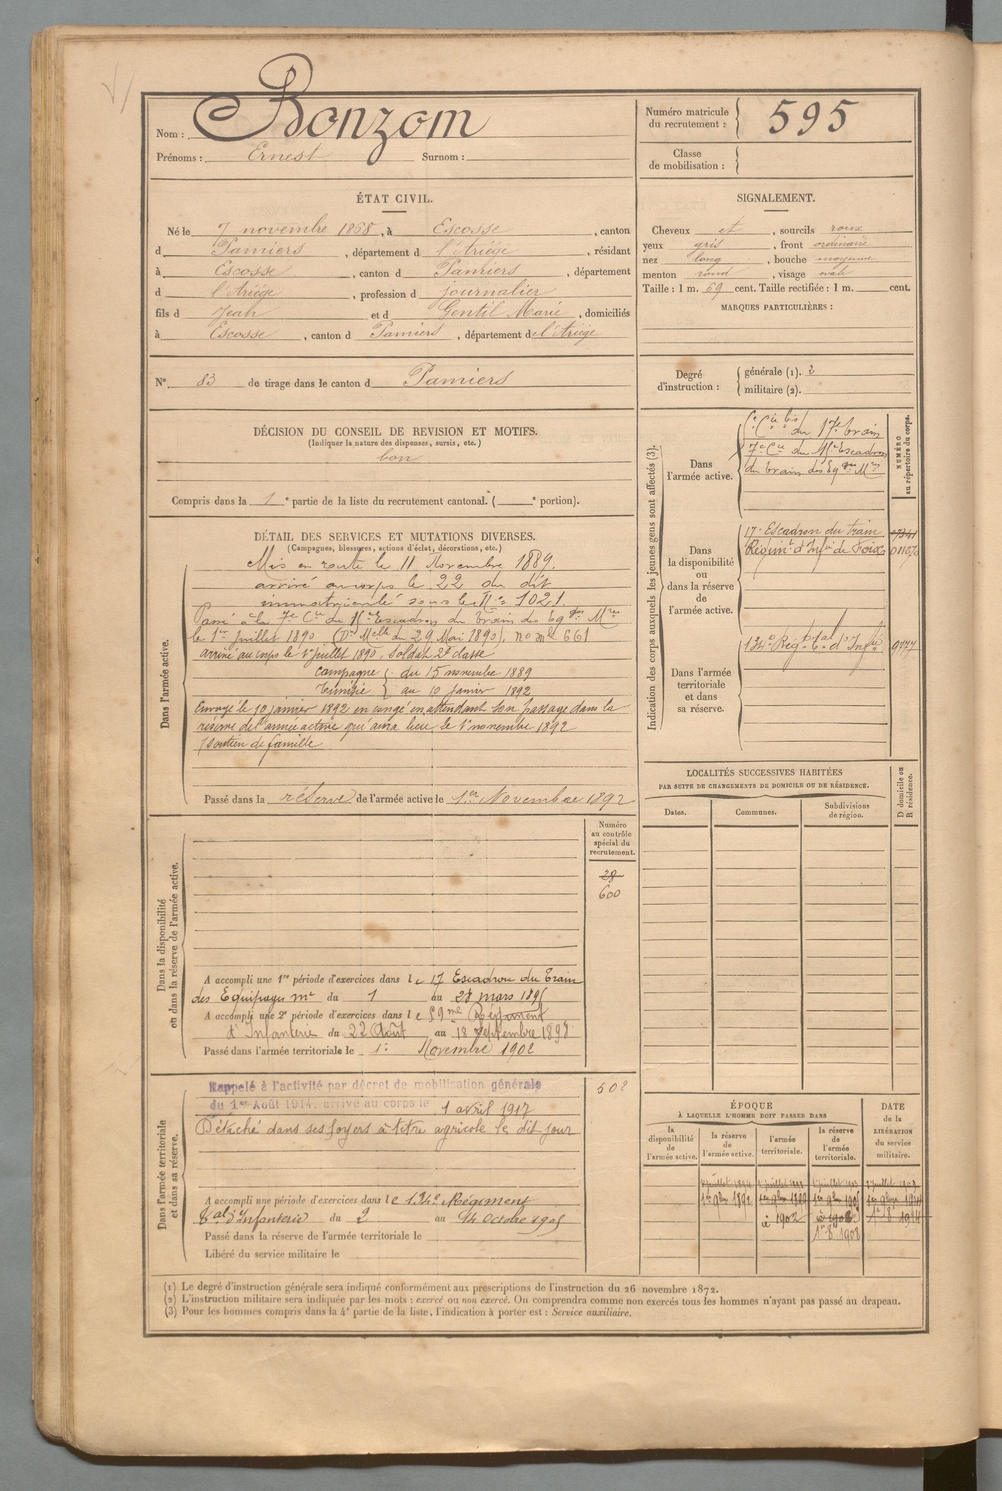 Nom : Bonzom
Prénoms : Ernest Surnom :
Numéro matricule du recrutement : 595
Classe de mobilisation :
ÉTAT CIVIL.
Né le 7 novembre 1868, à Escosse, canton
d Pamiers, département d l'Ariège, résidant
à Escosse, canton d Pamiers, département
d l'Ariège, profession d journalier
fils d Jean et d Gentil Marie, domiciliés
à Escosse, canton d Pamiers, département de l'Ariège
SIGNALEMENT.
Cheveux et, sourcils roux
yeux gris, front ordinaire
nez long, bouche moyenne
menton rond, visage ovale
Taille : 1 m. 69 cent. Taille rectifiée : 1 m. cent.
MARQUES PARTICULIÈRES :
N° 83 de tirage dans le canton d Pamiers
Degré d'instruction :
générale (1). 2
militaire (2).
DÉCISION DU CONSEIL DE REVISION ET MOTIFS.
(Indiquer la nature des dispenses, sursis, etc.)
bon
Compris dans la 1e partie de la liste du recrutement cantonal. ( e portion).
DÉTAIL DES SERVICES ET MUTATIONS DIVERSES.
(Campagnes, blessures, actions d'éclat, décorations, etc.)
Dans l'armée active.
Mis en route le 11 Novembre 1889.
arrivé au corps le 22 du dit
immatriculé sous le N° 1021.
Passé à la 7e Cie du Escadron du train des Eq ges Mres
le 1er Juillet 1890 (Dn Melle du 29 Mai 1890), no mle 661
arrivé au corps le 1er juillet 1890, soldat 2e classe
campagne du 15 novembre 1889
Tunisie au 10 janvier 1892
Envoyé le 10 janvier 1892 en congé en attendant son passage dans la
réserve de l'armée active qui aura lieu le 1er novembre 1892
soutien de famille
Passé dans la réserve de l'armée active le 1er Novembre 1892
Indication des corps auxquels les jeunes gens sont affectés (3).
NUMÉRO au répertoire du corps.
Dans l'armée active.
Cie bis du 17e train
7e Cie du Escadron
du train des Eq ges Mres
Dans la disponibilité ou dans la réserve de l'armée active.
17e Escadron du train
Régimt d'Infie de Foix
Dans l'armée territoriale et dans sa réserve.
134e Régt tal d'Infie 9777
LOCALITÉS SUCCESSIVES HABITÉES
PAR SUITE DE CHANGEMENTS DE DOMICILE OU DE RÉSIDENCE.
Dates. Communes. Subdivisions de région.
D domicile ou R résidence.
Numéro au contrôle spécial du recrutement.
28
600
Dans la disponibilité ou dans la réserve de l'armée active.
A accompli une 1re période d'exercices dans le 17 Escadron du Train
des Equipages mre du 1 au 28 mars 189
A accompli une 2e période d'exercices dans le 59me Régiment
d'Infanterie du 22 Août au 18 Septembre 1898
Passé dans l'armée territoriale le 1er Novembre 1902
Dans l'armée territoriale et dans sa réserve.
Rappelé à l'activité par décret de mobilisation générale
du 1er Août 1914, arrivé au corps le 1 avril 1917
Détaché dans ses foyers à titre agricole le dit jour
502
A accompli une période d'exercices dans le 134e Régiment
tal d'Infanterie du 2 au 14 Octobre 1905
Passé dans la réserve de l'armée territoriale le
Libéré du service militaire le
ÉPOQUE
À LAQUELLE L'HOMME DOIT PASSER DANS
la disponibilité de l'armée active.
la réserve de l'armée active.
l'armée territoriale.
la réserve de l'armée territoriale.
DATE de la LIBÉRATION du service militaire.
1er 9bre 1892
1902
1908
(1) Le degré d'instruction générale sera indiqué conformément aux prescriptions de l'instruction du 26 novembre 1872.
(2) L'instruction militaire sera indiquée par les mots : exercé ou non exercé. On comprendra comme non exercés tous les hommes n'ayant pas passé au drapeau.
(3) Pour les hommes compris dans la 4e partie de la liste, l'indication à porter est : Service auxiliaire.